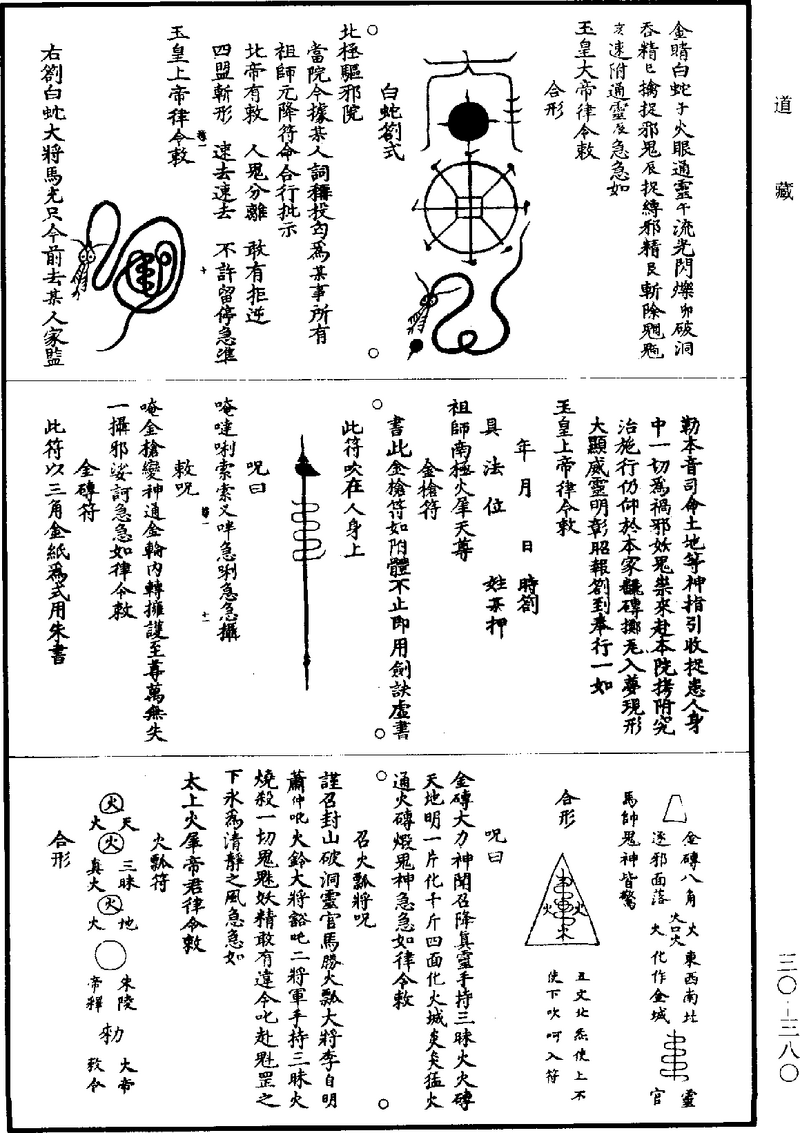 道藏
三〇-三八〇
金睛白蛇子火眼通靈午流光閃爍卯破洞
吞精巳擒捉邪鬼辰捉縛邪精艮斬除魍魎
亥速附通靈辰急急如
玉皇大帝律令敕
合形
白蛇劄式
北極驅邪院
當院今據某人詞稱投為某事所有
祖師元降符命合行批示
北帝有敕 人鬼分離 敢有拒逆
四盟斬形 速去速去 不許留停急準
卷一 十
玉皇上帝律令敕
右劄白蛇大將馬光只今前去某人家監
勒本音司命土地等神指引收捉患人身
中一切為禍邪妖鬼祟來赴本院拷附究
治施行仍仰於本家飜磚擲瓦入夢現形
大顯威靈明彰昭報劄到奉行一如
玉皇上帝律令敕
年 月 日 時劄
具法位 姓某押
祖師南極火犀天尊
金槍符
書此金槍符如附體不止即用劍訣虛書
此符吹在人身上
呪曰
唵噠唎索索叉吽急唎急急攝
卷一 十一
敕呪
唵金槍變神通金輪內轉擁護至尊萬無失
一攝邪娑訶急急如律令敕
金磚符
此符以三角金紙為式用朱書
金磚八角 火 東西南北
逐邪面落 火 化作金城
火口火
靈官
馬帥鬼神皆驚
合形
火 火 火
五文北炁使上不
使下吹呵入符
呪曰
金磚大力神聞召降真靈手持三昧火火磚
天地明一片化千斤四面化火城炎炎猛火
通火磚煅鬼神急急如律令敕
召火瓢將呪
謹召封山破洞靈官馬勝火瓢大將李自明
蕭仲吼火鈴大將谿吒二將軍手持三昧火
燒殺一切鬼魅妖精敢有違令叱赴魁罡之
下永為清靜之風急急如
太上火犀帝君律令敕
火瓢符
火 天
火
火 三昧
真火
火 地
火
東陵
帝釋
勑 大帝
敕令
合形